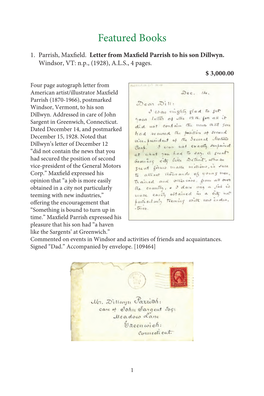 Featured Books
1. Parrish, Maxfield. Letter from Maxfield Parrish to his son Dillwyn.
Windsor, VT: n.p., (1928), A.L.S., 4 pages.
$ 3,000.00
Four page autograph letter from
American artist/illustrator Maxfield
Parrish (1870-1966), postmarked
Windsor, Vermont, to his son
Dillwyn. Addressed in care of John
Sargent in Greenwich, Connecticut.
Dated December 14, and postmarked
December 15, 1928. Noted that
Dillwyn's letter of December 12
"did not contain the news that you
had secured the position of second
vice-president of the General Motors
Corp." Maxfield expressed his
opinion that "a job is more easily
obtained in a city not particularly
teeming with new industries,"
offering the encouragement that
"Something is bound to turn up in
time." Maxfield Parrish expressed his
pleasure that his son had "a haven
like the Sargents' at Greenwich."
Commented on events in Windsor and activities of friends and acquaintances.
Signed "Dad." Accompanied by envelope. [109464]
Dec. 14.
Dear Dill:
I was mighty glad to get
your letter of the 12th for as it
did not contain the news that you
had secured the position of second
vice-president of the General Motors
Mr. Dillwyn Parrish:
care of John Sargent Esq:
Meadow Lane
Greenwich:
Connecticut
1